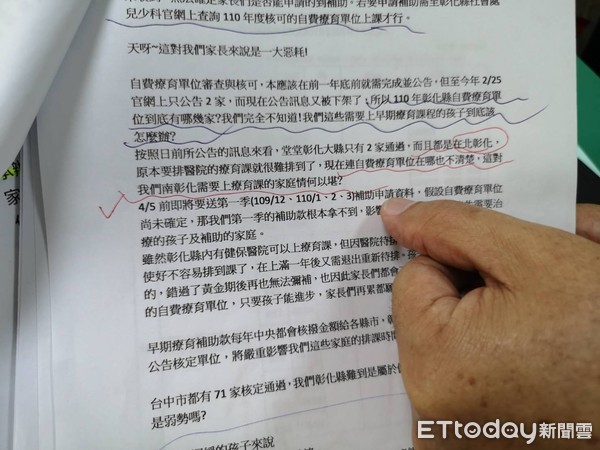 們是否能申請的到補助。若要申請補助需至彰化縣社會處
兒少科官網上查詢 110 年度核可的自費療育單位上課才行。
天呀~這對我們家長來說是一大惡耗!
自費療育單位審查與核可，本應該在前一年底前就需完成並公告，但至今年 2/25
官網上只公告 2 家，而現在公告訊息又被下架了；所以 110 年彰化縣自費療育單
位到底有哪幾家?我們完全不知道!我們這些需要上早期療育課程的孩子到底該
怎麼辦?
按照日前所公告的訊息來看，堂堂彰化大縣只有 2 家通過，而且都是在北彰化，
原本要排醫院的療育課就很難排到了，現在連自費療育單位在哪也不清楚，這對
我們南彰化需要上療育課的家庭情何以堪?
4/5 前即將要送第一季(109/12、110/1、2、3)補助申請資料，假設自費療育單位
尚未確定，那我們第一季的補助款根本拿不到，影 需要治
療的孩子及補助的家庭。
雖然彰化縣內有健保醫院可以上療育課，但因醫院待排
使好不容易排到課了，在上滿一年後又需退出重新待排。
的，錯過了黃金期後再也無法彌補，也因此家長們都會
的自費療育單位，只要孩子能進步，家長們再累都
早期療育補助款每年中央都會核撥金額給各縣市，
公告核定單位，將嚴重影響我們這些家庭的排課時
台中市都有 71 家核定通過，我們彰化縣難到是屬於
是弱勢嗎?
的孩子來說
家
ETtoday新聞雲